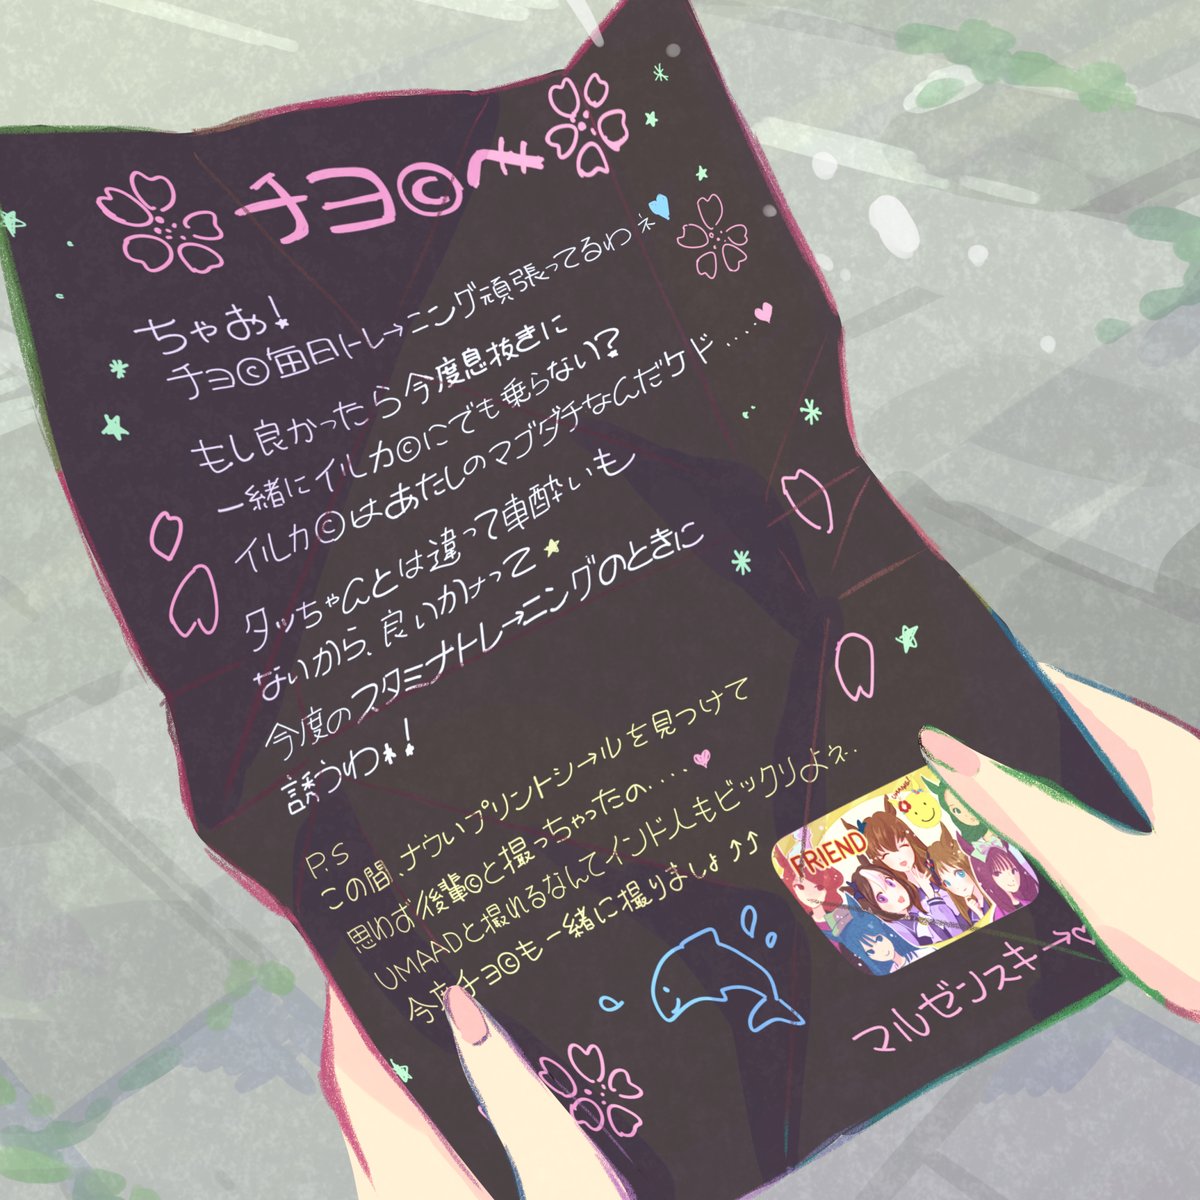 チヨ©へ
ちゃお!
チヨ©毎日トレ→ニング頑張ってるわネ
もし良かったら今度息抜きに
一緒にイルカ©にでも乗らない?
イルカ©はあたしのマブダチなんだケド….
タッちゃんとは違って車酔いも
ないから、良いかけって
今度のスタミナトレ→ニングのときに
誘うわネ!
P.S
この間、ナウいプリントシ→ルを見つけて
思わず後輩©と撮っちゃったの....
UMAADと撮れるなんてインド人もビックリよネ..
今度チヨ©も一緒に撮りましょ↑↑
FRIEND
マルゼンスキ→